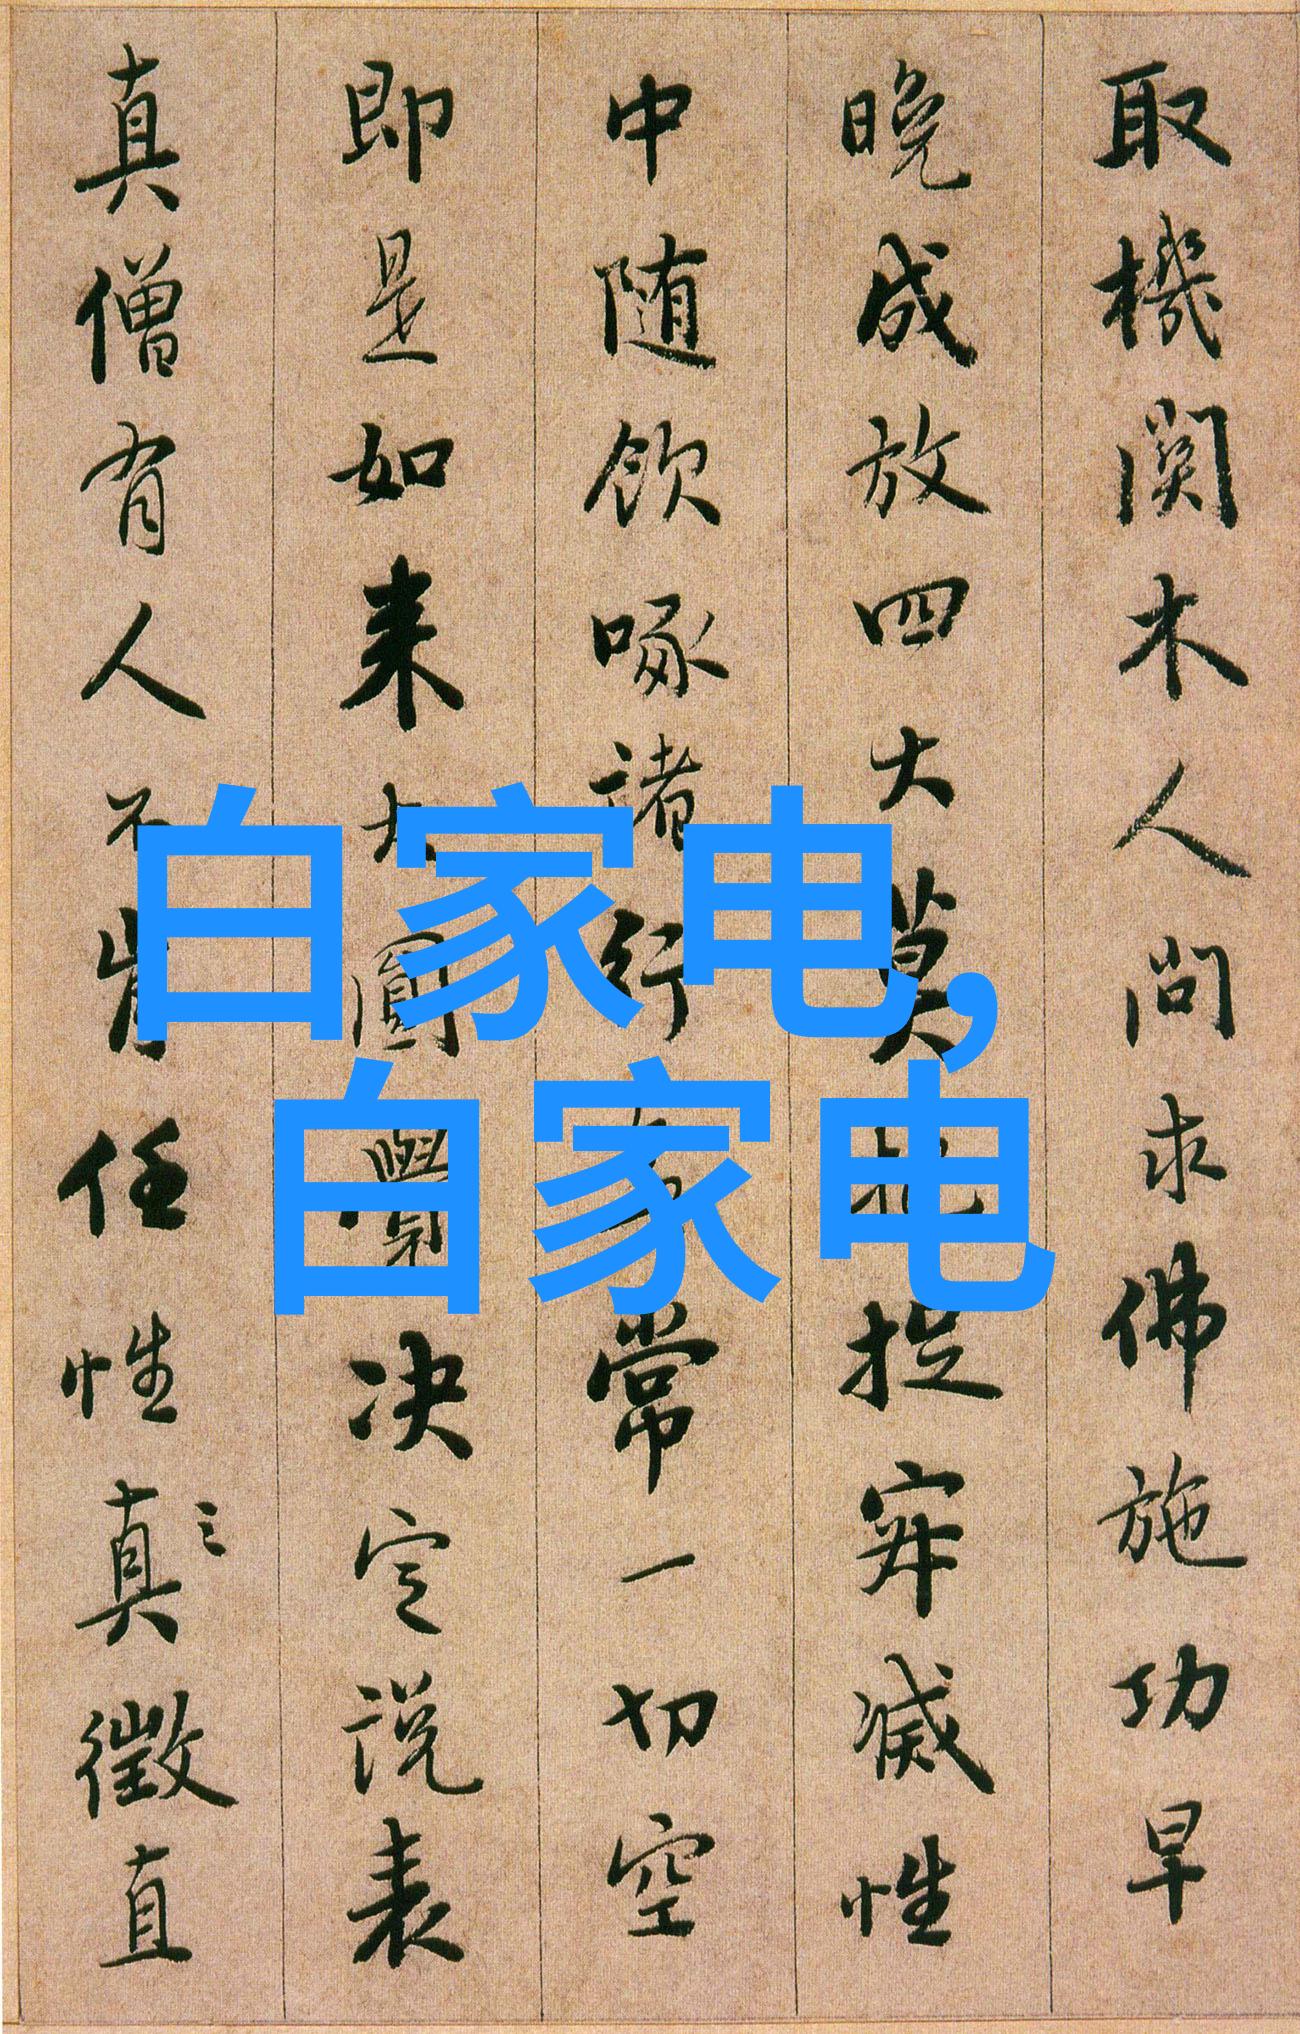 取機関木人問求佛施功早
晚成放四大莫把捉寂滅性
中随飲啄諸行常一切空
即是如来大圓覺决定説表
真僧有人不肯任性真徵直
白家电,
白家电